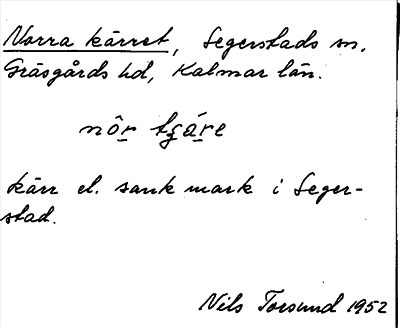 Norra kärret, Segerstads sn,
Gräsgårds hd, Kalmar län.
kärr el. sank mark i Seger-
stad.
Nils Torsund 1952